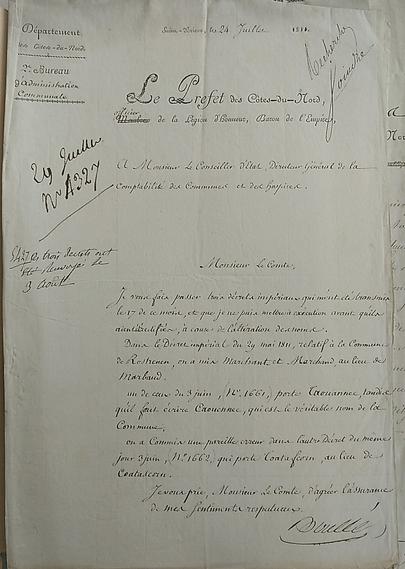 Département
des Côtes-du-Nord
2e Bureau
d'administration
Communale
Saint-Brieuc, le 24 Juillet 1811.
Recherche
Joindre
Le Préfet des Côtes-du-Nord,
officier
Membre de la Légion d'honneur, Baron de l'Empire,
29 Juillet
N° 4327
A Monsieur Le Conseiller d'Etat, Directeur Général de la
Comptabilité des Communes et des hospices.
les trois Decrets ont
été renvoyés le
3 Août
Monsieur Le Comte,
Je vous fais passer trois décrets impériaux qui m'ont été transmis
le 17 de ce mois, et que je ne puis mettre à exécution avant qu'ils
aient été rectifiés, à cause de l'altération des noms.
Dans le Décret impérial du 29 mai 1811, relatif à la Commune
de Rostrenen, on a mis Marchant et Marchand au lieu de
Marbaud.
un de ceux du 3 juin, N°. 1661, porte Taouannec, tandis
qu'il faut écrire Caouennec, qui est le véritable nom de la
Commune.
on a Commis une pareille erreur dans l'autre Décret du même
jour 3 juin, N°. 1662, qui porte Coatafcorn, au lieu de
Coatascorn.
Je vous prie, Monsieur Le Comte, d'agréer l'assurance
de mes sentiments respectueux.
Boullé